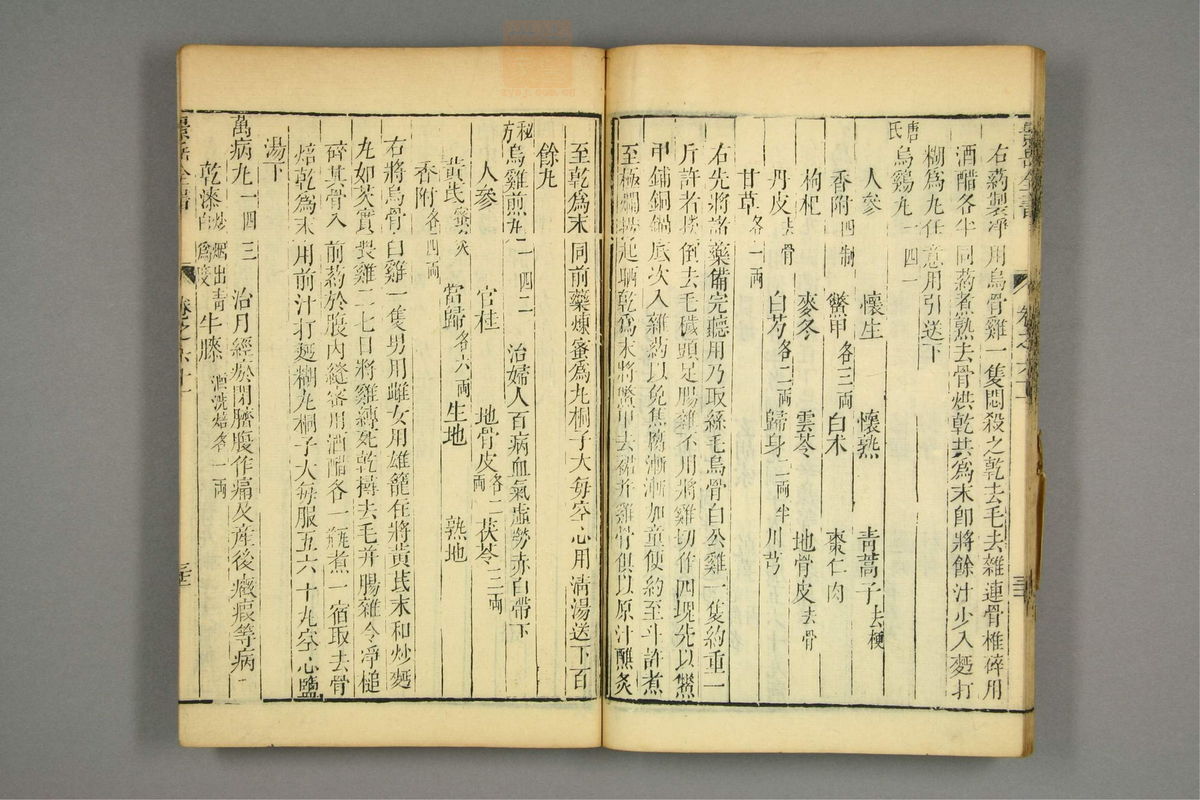 景岳全書 卷之六十一
右藥製淨用烏骨雞一隻悶殺之乾去毛去雜連骨椎碎用
酒醋各半同藥煮熟去骨烘乾共爲末卽將餘汁少入麪打
糊爲丸任意用引送下
唐氏烏鷄丸一四一
人參 懷生 懷熟 靑蒿子去梗
香附四制 鱉甲各三両 白术 棗仁肉
枸杞 麥冬 雲苓 地骨皮去骨
丹皮去骨 白芍各二両 歸身二両半 川芎
甘草各一両
右先將諸藥備完聽用乃取絲毛烏骨白公雞一隻約重一
斤許者𢱢倒去毛穢頭足腸雜不用將雞切作四塊先以鱉
甲鋪銅鍋底次入雞藥以免焦腐漸漸加童便約至斗許煮
至極爛撈起晒乾爲末將鱉甲去裙并雞骨俱以原汁蘸炙
至乾爲末同前藥煉蜜爲丸桐子大每空心用淸湯送下百
餘丸
秘方烏雞煎丸一四二 治婦人百病血氣虛勞赤白帶下
人參 官桂 地骨皮各二両 茯苓三両
黃芪蜜炙 當歸各六両 生地 熟地
香附各四両
右將烏骨白雞一隻男用雌女用雄籠住將黃芪末和炒麪
丸如芡實喂雞二七日將雞縛死乾撏去毛并腸雜令淨槌
碎其骨入前藥於腹內縫密用酒醋各一瓶煮一宿取去骨
焙乾爲末用前汁打麪糊丸桐子大每服五六十丸空心鹽
湯下
萬病丸一四三 治月經瘀閉臍腹作痛及産後癥瘕等病
乾漆炒烟出靑白爲度 牛膝酒洗焙各一両
景岳全書 卷之六十一